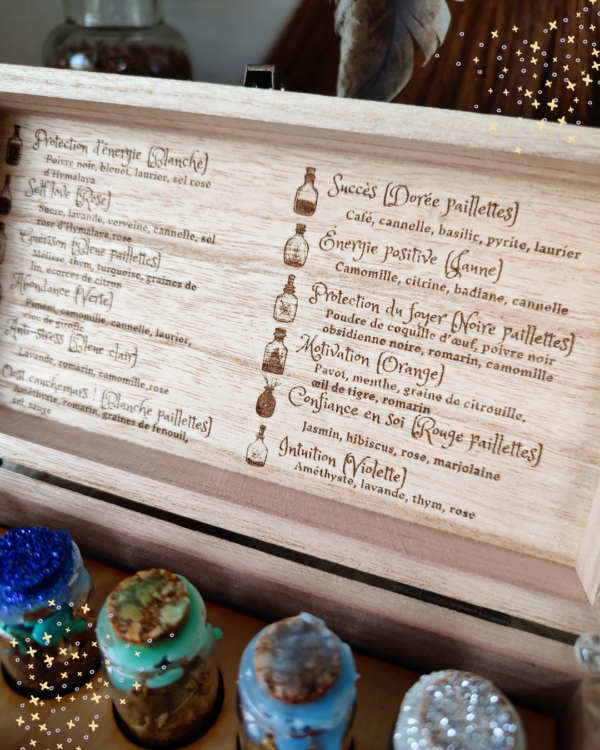 Protection d'énergie (Blanche)
Poivre noir, bleuet, laurier, sel rose
d'Hymalaya
Self love (Rose)
Sucre, lavande, verveine, cannelle, sel
rose d'Hymalaya, rose
Guérison (Bleue paillettes)
Mélisse, thym, turquoise, graines de
lin, écorces de citron
Abondance (Verte)
Piment, camomille, cannelle, laurier,
clou de girofle
Anti-stress (Bleue clair)
Lavande, romarin, camomille, rose
Oust cauchemars ! (Blanche paillettes)
Améthyste, romarin, graines de fenouil,
sel, sauge
Succès (Dorée paillettes)
Café, cannelle, basilic, pyrite, laurier
Énergie positive (Jaune)
Camomille, citrine, badiane, cannelle
Protection du foyer (Noire paillettes)
Poudre de coquille d'œuf, poivre noir
obsidienne noire, romarin, camomille
Motivation (Orange)
Pavot, menthe, graine de citrouille,
œil de tigre, romarin
Confiance en soi (Rouge paillettes)
Jasmin, hibiscus, rose, marjolaine
Intuition (Violette)
Améthyste, lavande, thym, rose